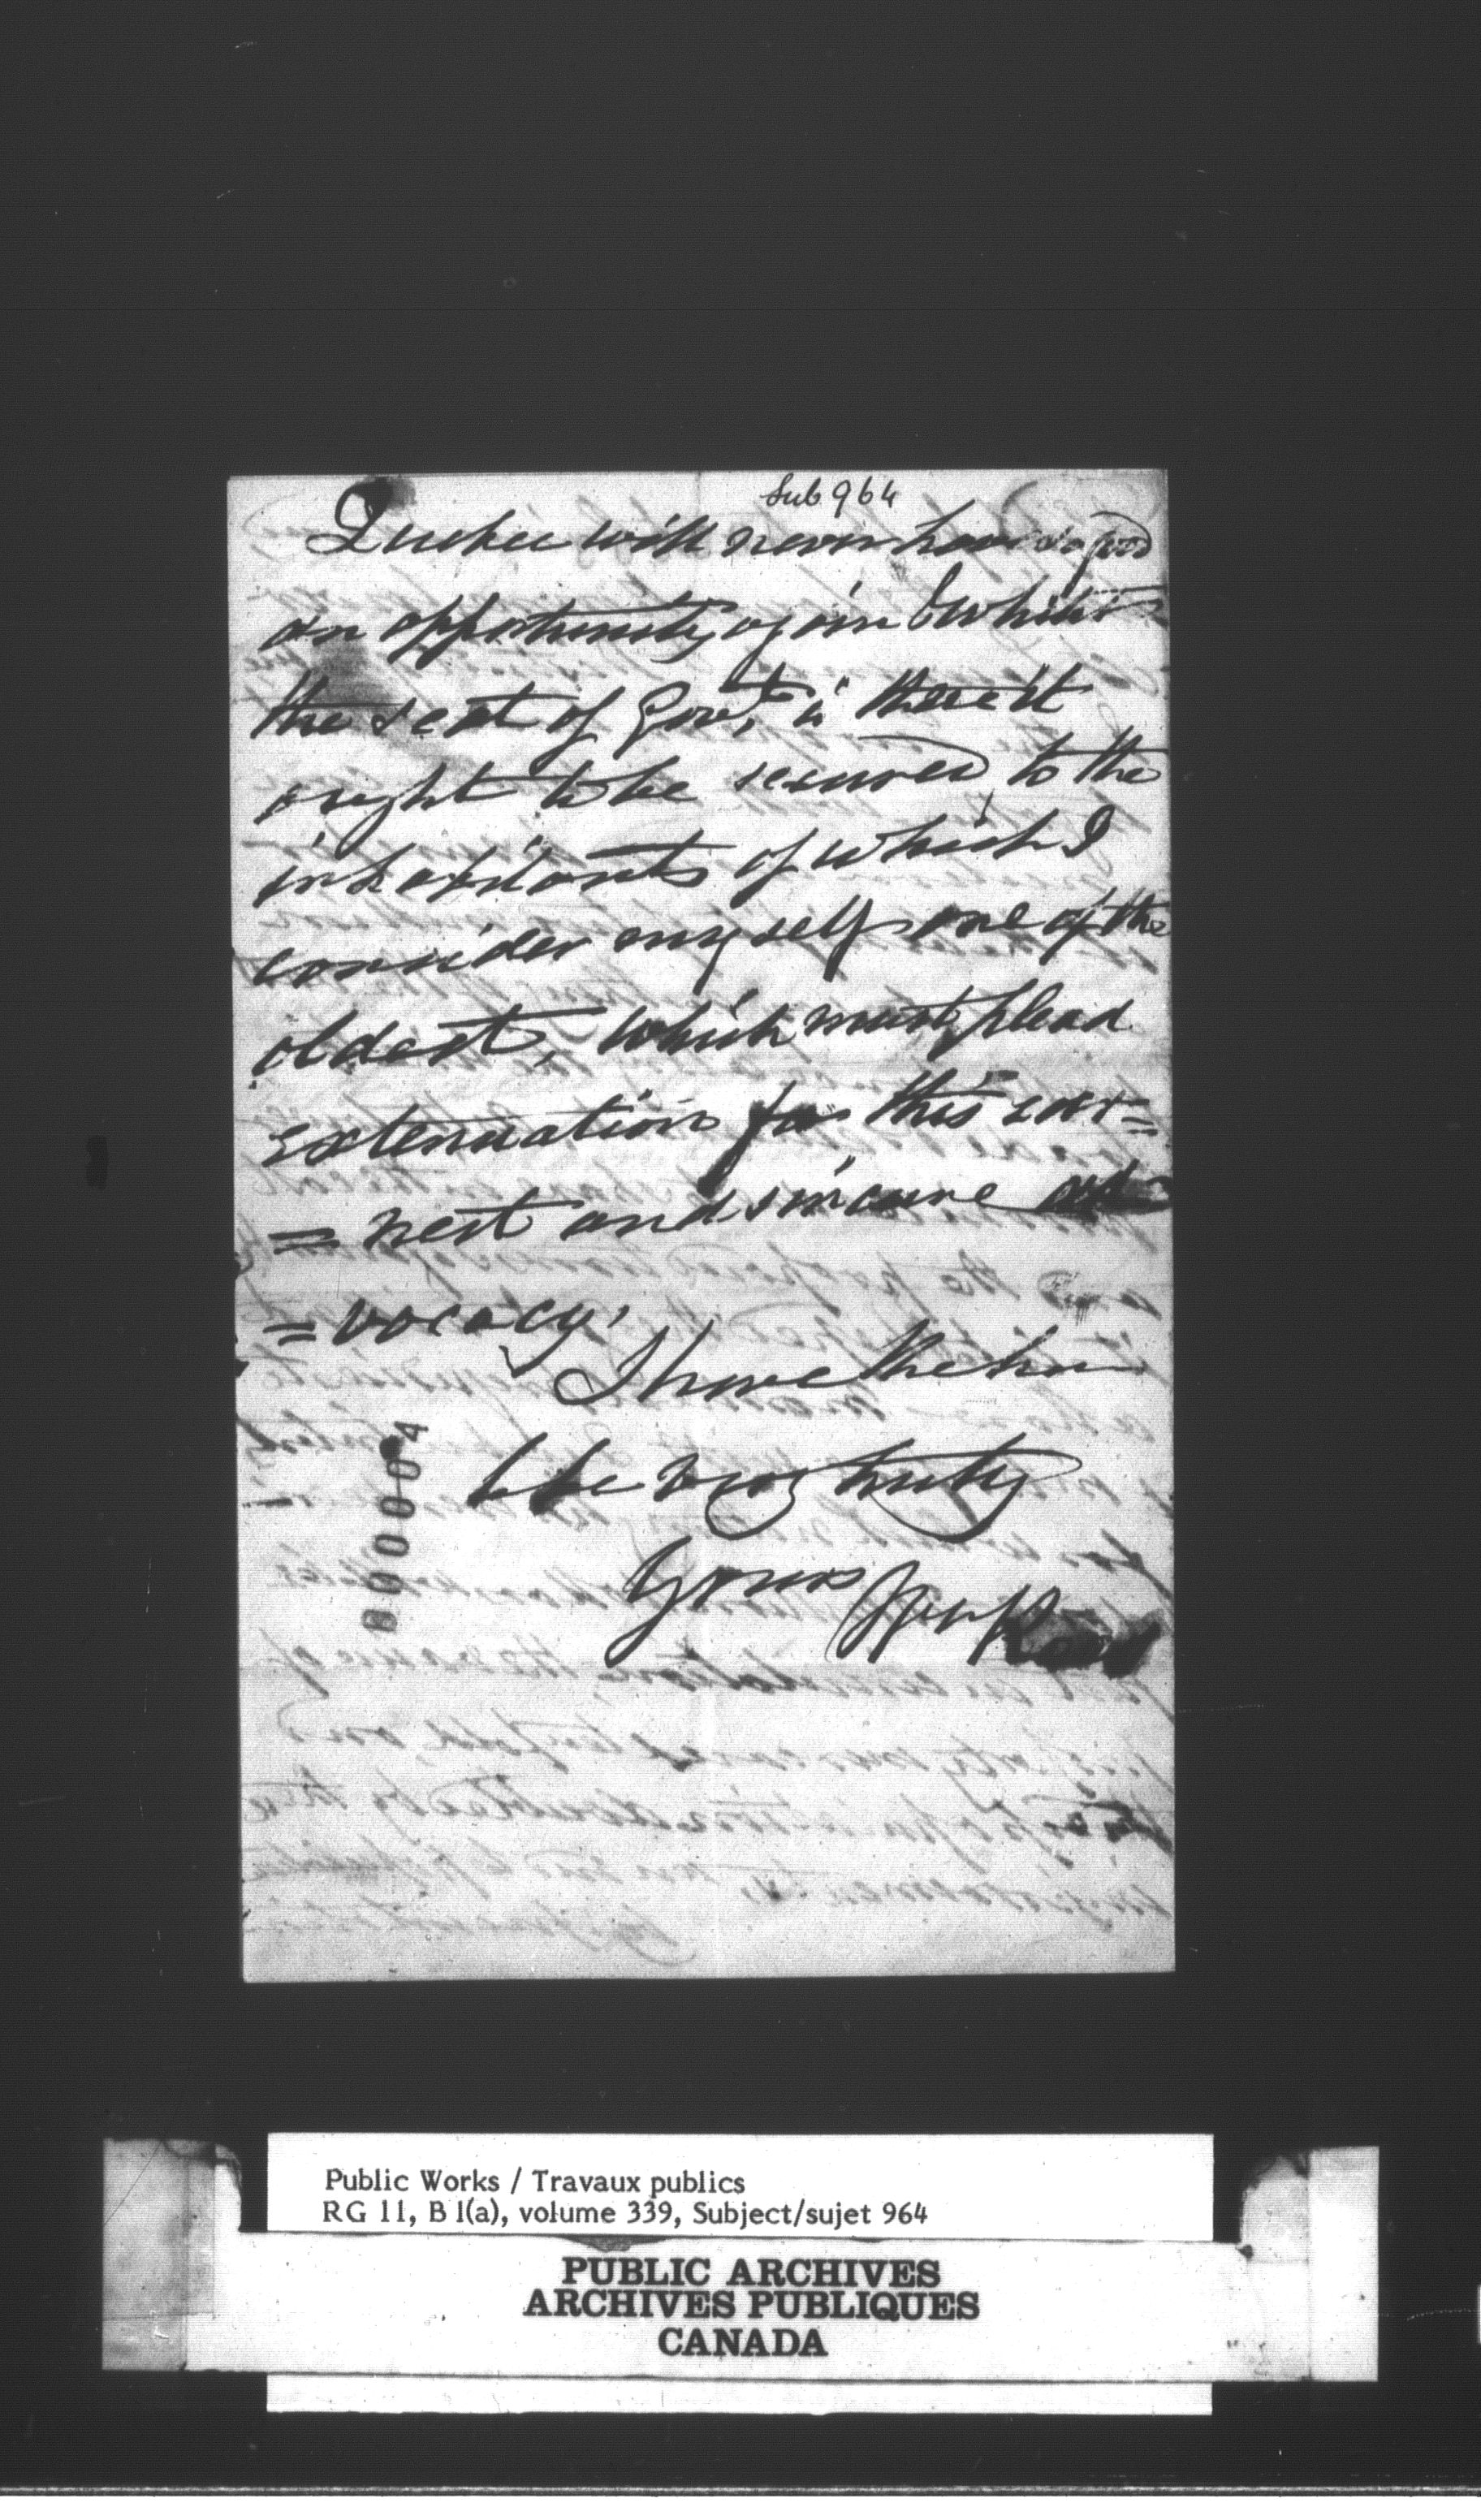 Sub 964
Quebec will never have so good
an opportunity again & whilst
the seat of Govt, is there it
ought to be secured, to the
inhabitants of which I
consider myself one of the
oldest, which must plead
extenuation for this ear=
=nest and sincere ad
=vocacy,
I have the hon
to be very truly
yours
000004
Public Works / Travaux publics
RG 11, B 1(a), volume 339, Subject/sujet 964
PUBLIC ARCHIVES
ARCHIVES PUBLIQUES
CANADA